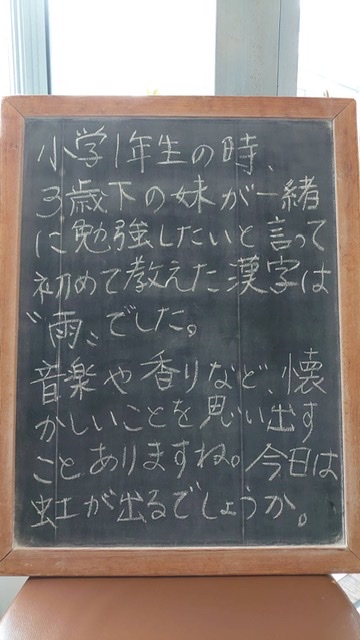 小学1年生の時、
3歳下の妹が一緒
に勉強したいと言って
初めて教えた漢字は
〝雨〟でした。
音楽や香りなど、懐
かしいことを思い出す
ことありますね。今日は
虹が出るでしょうか。